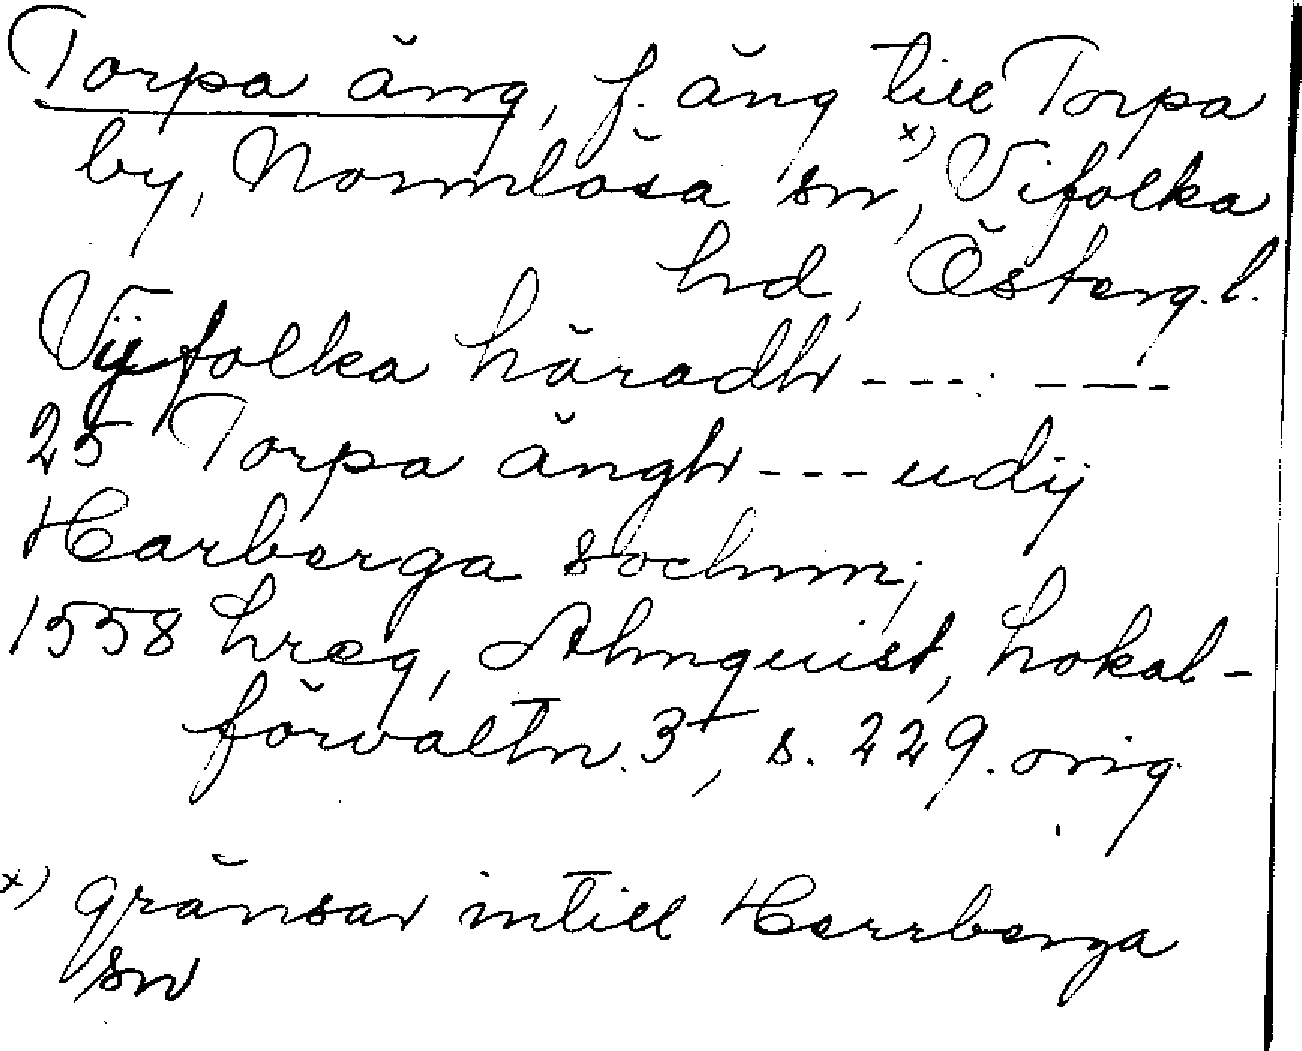 Torpa äng, f. äng till Torpa
by, Normlösa sn x), Vifolka
hd, Österg.l.
Vijfolka häradh ---. ----
25 Torpa ängh --- udij
Harberga sochnn;
1558 hreg, Almquist, Lokal-
förvaltn. 3+, s. 229. orig.
x) gränsar intill Herrberga
sn